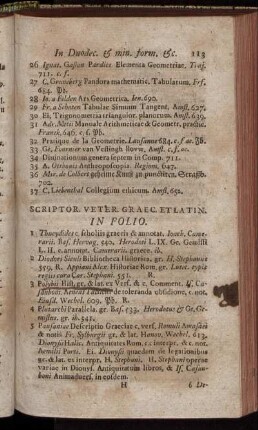 In Duodec. & min. form, &c. 113
26 Ignat. Gaston Pardies Elementa Geometriae, Traj.
711. c. f.
27 C. Grüneberg Pandora mathematic. Tabularum, Frf.
684. Pb.
28 In. a Felden Ars Geometrica, Ien. 690.
29 Fr. a Schoten Tabulae Sinuum Tangent. Amst. 627.
30 Ej. Trigonometria triangulor. planorum, Amst. 639.
31 Adr. Metii Manuale Arithmeticae & Geometr. practic.
Franek. 646. c. f. Pb.
32 Pratique de la Geometrie. Lausanne 684. c. f. æc. Fb.
33 Gr. Laurmar van Vestingh Bouw, Amst. c. f. æc.
34 Diminutionum genera inprem in Comp. 711.
35 A. Osthovii Anthroposcopia. Region. 647.
36 Mar. de Colbert
702.
37 C. Liebenthal Collegium ethicum. Amst. 652.
SCRIPTOR. VETER. GRAEC. ET LATIN.
IN FOLIO.
1 Thucydides c. scholiis graecis & annotat. Ioach. Camerarii.
Bas. Hervag. 540. Herodoti L. IX. Gr. Gemisti
L. II. c. annotat. Camerarii. graece. ib.
2 Diodori Siculi Bibliotheca Historica, gr. H. Stephanus
559. R. Appiani Alex. Historiae Rom. gr. Lutet. typis
regiis cura Car. Stephani. 551. R.
3 Polybii Hist. gr. & lat. ex Vers. & c. Comment. Is. Casauboni:
Aeneae Tacticus de toleranda obsidione, c. not.
Eiusd. Wechel. 609. Pb. R.
4 Plutarchi Parallela. gr. Bas. 533. Herodotus & Ge. Gemistus.
gr. ib. 541.
5 Pausaniae Descriptio Graeciae c. vers. Romuli Amasaei &
notis Fr. Sylburgii gr. & lat. Hanov. Wechel, 613.
Dionysii Halic. Antiquitates Rom. c. interpr. & c. not.
Aemilii Porti. Ei. Dionysii quaedam de legationibus
gr. & lat. ex interpr. H. Stephani. H. Stephani operae
variae in Dionys. Antiquitatum libros, & Is. Casauboni
Animadvers. in eosdem.
H 6 De-